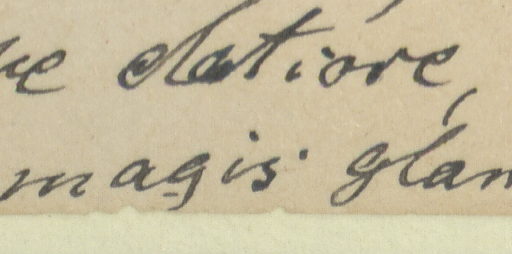 elatiore,
magis glan